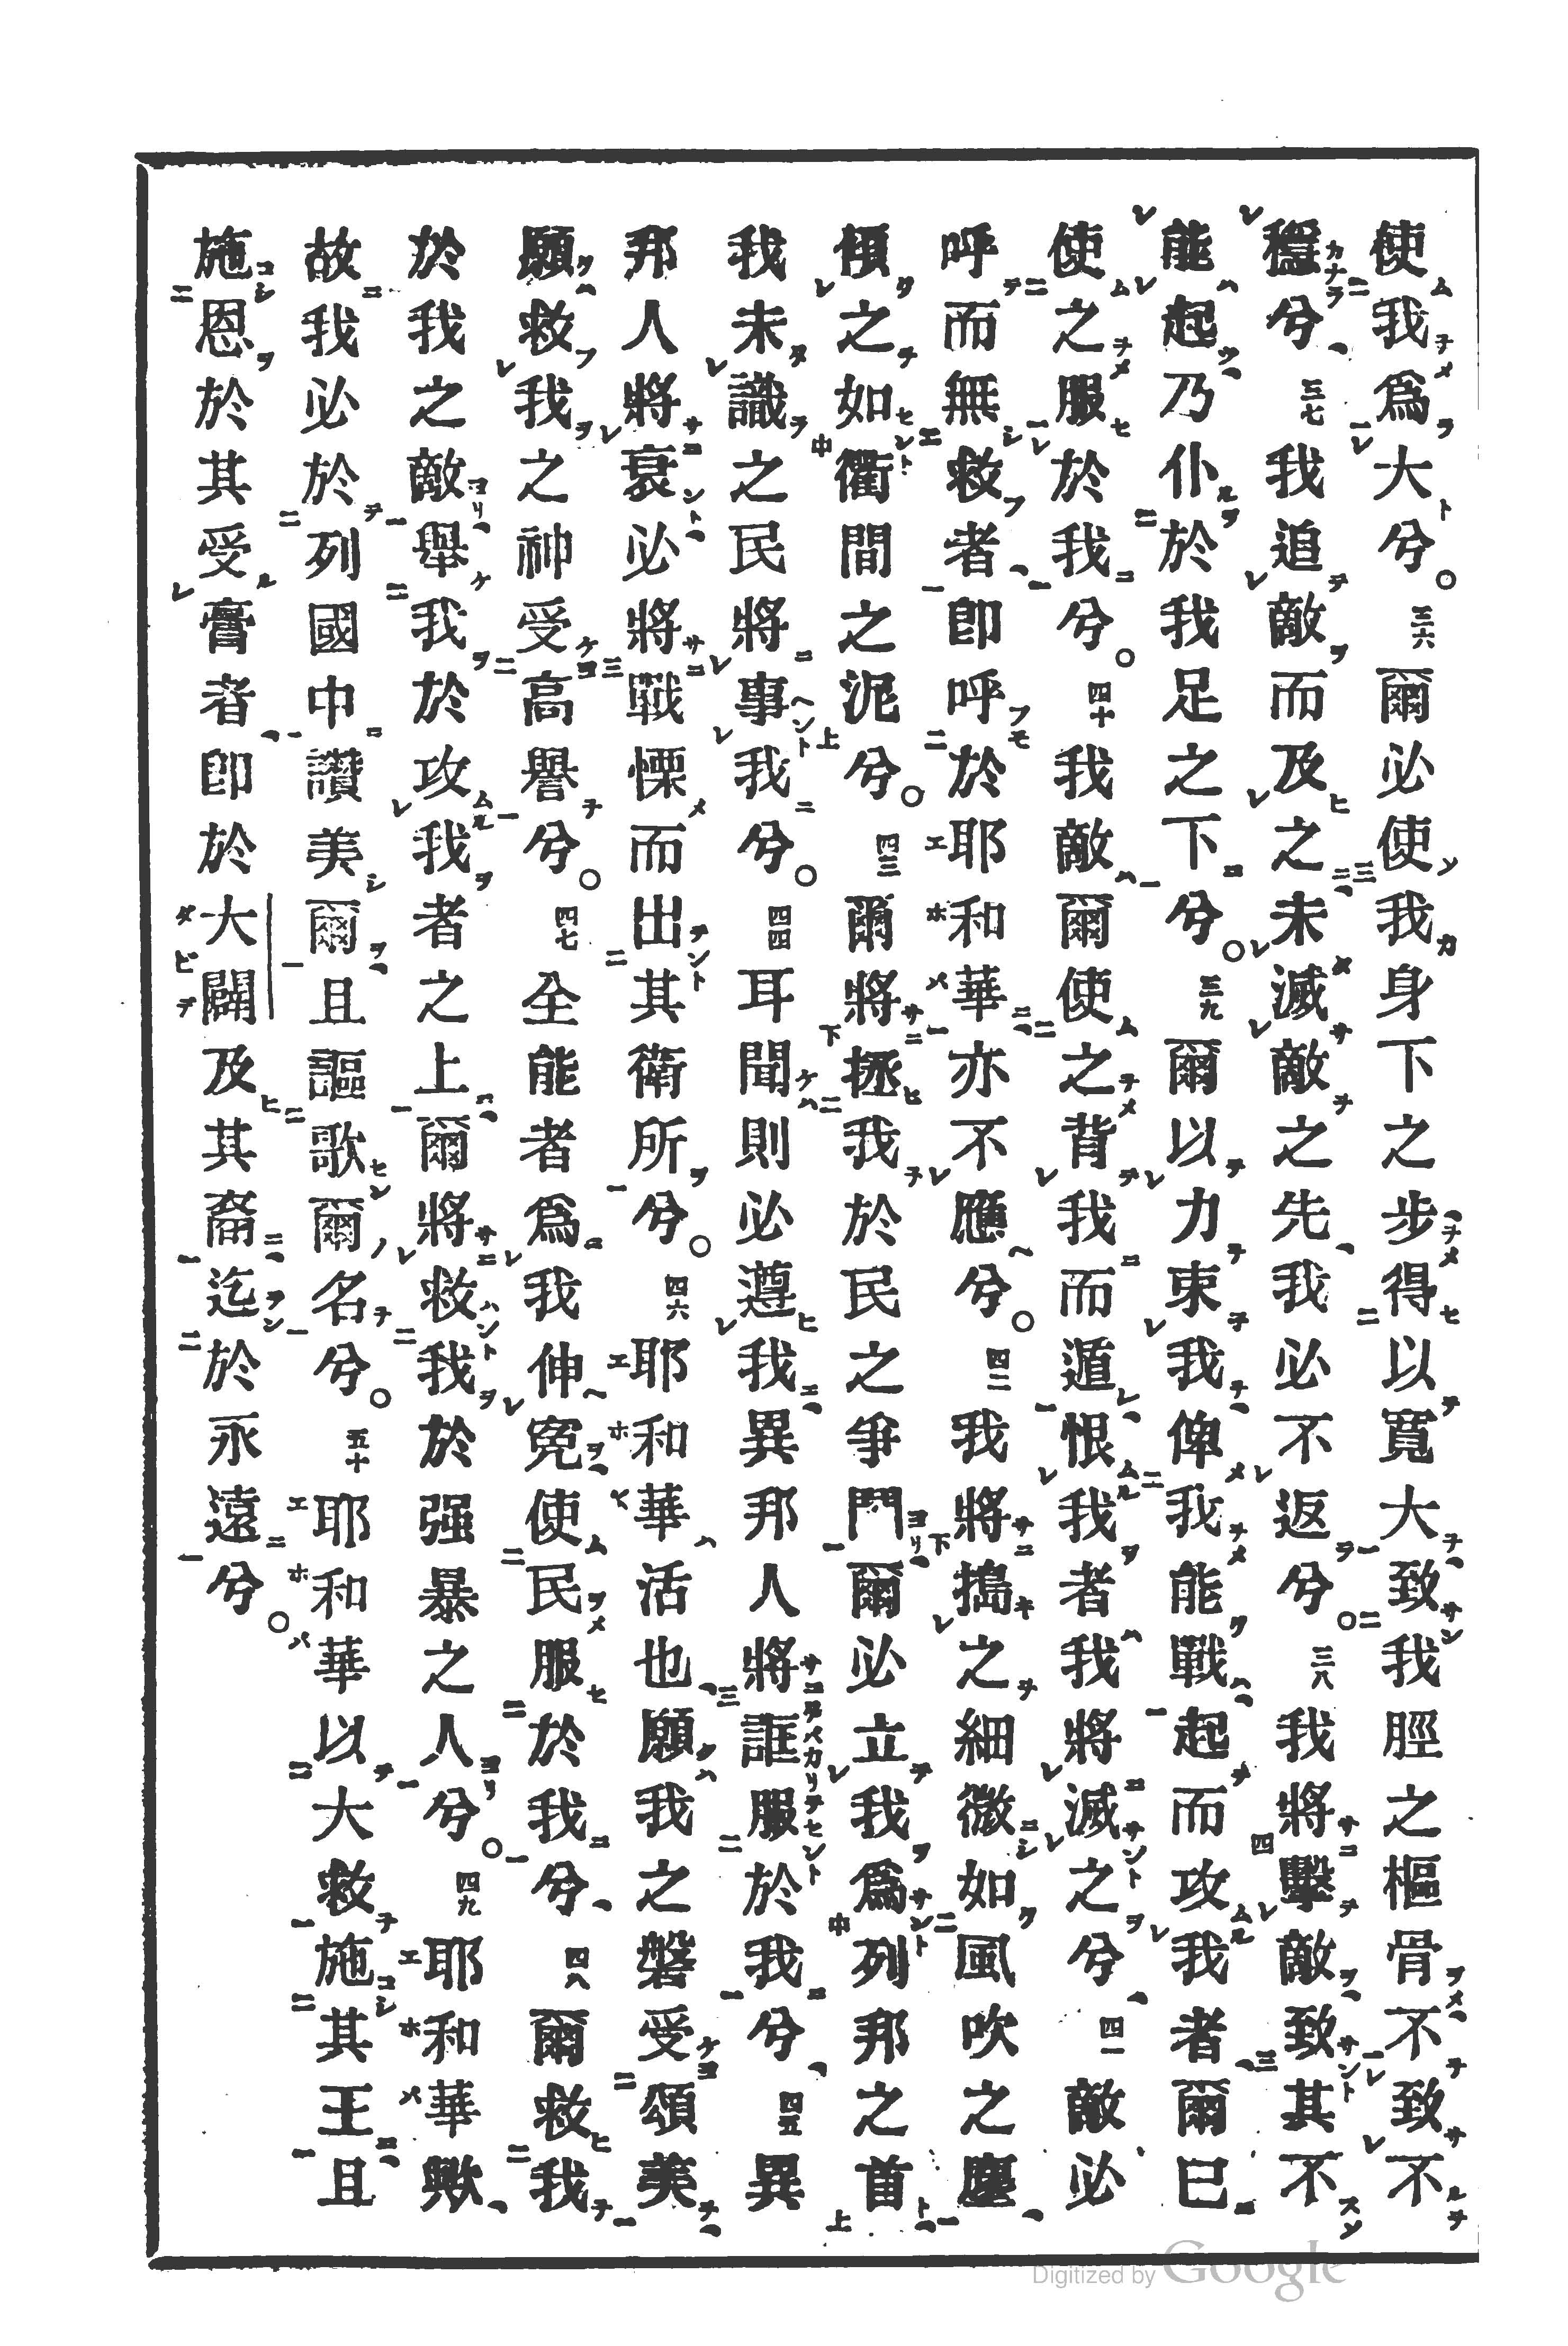 使我爲大兮。三六爾必使我身下之步得以寬大致我脛之樞骨不致不
穩兮三七我追敵而及之未滅敵之先我必不返兮。三八我將擊敵致其不
能起乃仆於我足之下兮。三九爾以力束我俾我能戰起而攻我者爾已
使之服於我兮。四十我敵爾使之背我而遁恨我者我將滅之兮四一敵必
呼而無救者卽呼於耶和華亦不應兮。四二我將搗之細微如風吹之塵
傾之如衢間之泥兮。四三爾將拯我於民之爭鬥爾必立我爲列邦之首
我未識之民將事我兮。四四耳聞則必遵我異邦人將誑服於我兮四五異
邦人將衰必將戰慄而出其衛所兮。四六耶和華活也願我之磐受頌美
願救我之神受高譽兮。四七全能者爲我伸寃使民服於我兮四八爾救我
於我之敵舉我於攻我者之上爾將救我於强暴之人兮。四九耶和華歟
故我必於列國中讚美爾且謳歌爾名兮。五十耶和華以大救施其王且
施恩於其受膏者卽於大闢及其裔迄於永遠兮。
Digitized by Google